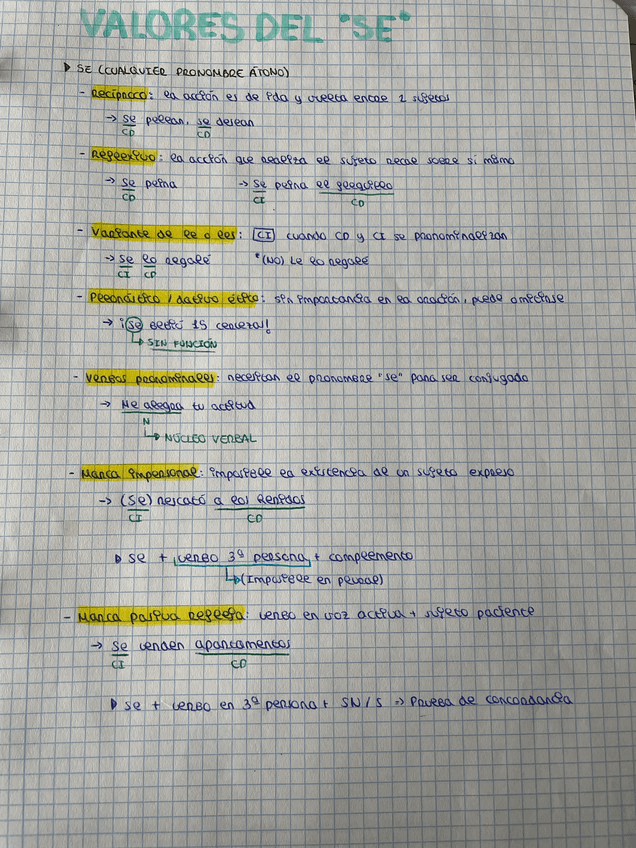 VALORES DEL "SE"
▸ SE (CUALQUIER PRONOMBRE ÁTONO)
- Recíproco: la acción es de ida y vuelta entre 2 sujetos
→ se pelean, se desean
CD CD
- Reflexivo: la acción que realiza el sujeto recae sobre si mismo
→ se peina → se peina el flequillo
CD CI CD
- Variante de le o les: CI cuando CD y CI se pronominalizan
→ se lo regalé *(NO) Le lo regalé
CI CD
- Pleonástico / dativo ético: sin importancia en la oración, puede omitirse
→ ¡se bebió 15 cerveza!
↳ SIN FUNCIÓN
- Verbos pronominales: necesitan el pronombre "se" para ser conjugado
→ Me alegra tu actitud
N
↳ NÚCLEO VERBAL
- Marca impersonal: imposible la existencia de un sujeto expreso
→ (Se) rescató a los heridos
CI CD
▸ se + verbo 3ª persona + complemento
↳ (Imposible en plural)
- Marca pasiva refleja: verbo en voz activa + sujeto paciente
→ se venden apartamentos
CI CD
▸ se + verbo en 3ª persona + SN / S => Prueba de concordancia